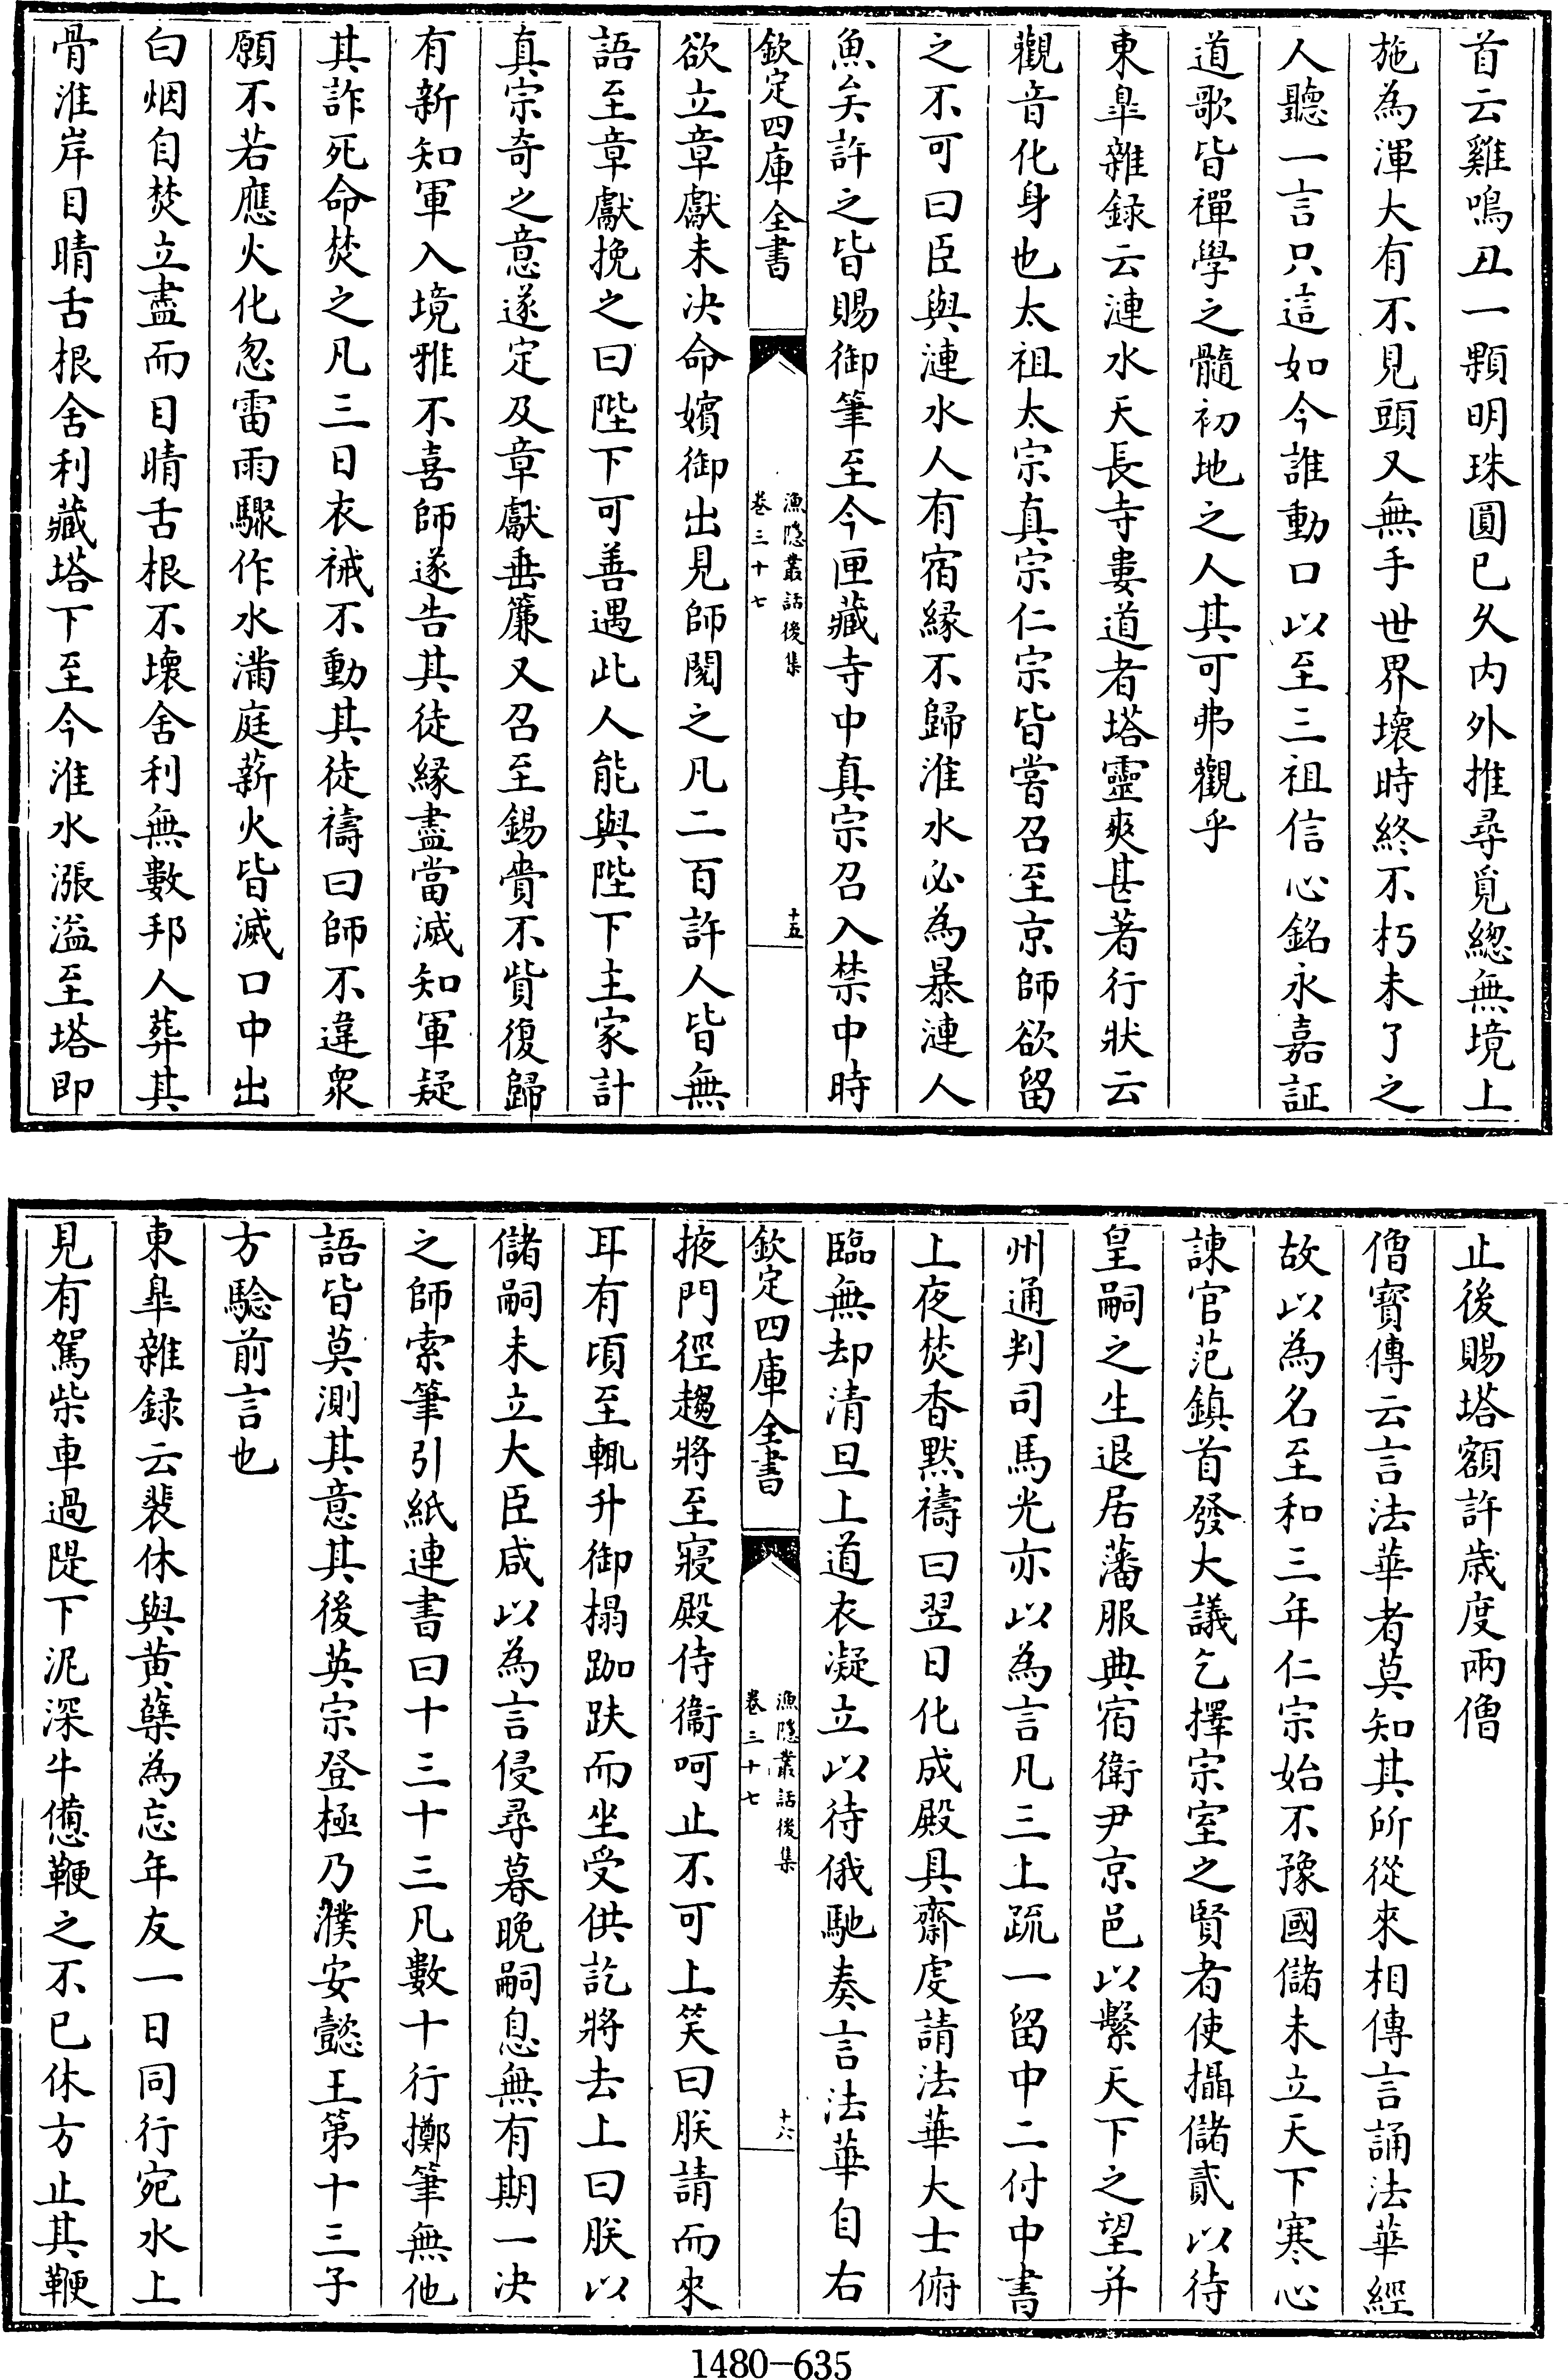 首云雞鳴丑一顆明珠圓已久内外推尋覓緫無境上
施為渾大有不見頭又無手世界壞時終不朽未了之
人聽一言只這如今誰動口以至三祖信心銘永嘉証
道歌皆禪學之髓初地之人其可弗觀乎
東臯雜録云漣水天長寺婁道者塔靈爽甚著行狀云
觀音化身也太祖太宗真宗仁宗皆嘗召至京師欲留
之不可曰臣與漣水人有宿縁不歸淮水必為暴漣人
魚矣許之皆賜御筆至今匣藏寺中真宗召入禁中時
欽定四庫全書
漁隠叢話後集
卷三十七
十五
欲立章獻未决命嬪御出見師閲之凡二百許人皆無
語至章獻挽之曰陛下可善遇此人能與陛下主家計
真宗奇之意遂定及章獻垂簾又召至錫賚不貲復歸
有新知軍入境雅不喜師遂告其徒緣盡當滅知軍疑
其詐死命焚之凡三日衣裓不動其徒禱曰師不違衆
願不若應火化忽雷雨驟作水滿庭薪火皆滅口中出
白烟自焚立盡而目睛舌根不壞舍利無數邦人葬其
骨淮岸目睛舌根舍利藏塔下至今淮水漲溢至塔即
止後賜塔額許歲度兩僧
僧寳傳云言法華者莫知其所從來相傳言誦法華經
故以為名至和三年仁宗始不豫國儲未立天下寒心
諫官范鎮首發大議乞擇宗室之賢者使攝儲貳以待
皇嗣之生退居藩服典宿衛尹京邑以繫天下之望并
州通判司馬光亦以為言凡三上疏一留中二付中書
上夜焚香黙禱曰翌日化成殿具齋䖍請法華大士俯
臨無却清旦上道衣凝立以待俄馳奏言法華自右
欽定四庫全書
漁隠叢話後集
卷三十七
十六
掖門徑趨將至寢殿侍衛呵止不可上笑曰朕請而來
耳有頃至輒升御榻跏趺而坐受供訖將去上曰朕以
儲嗣未立大臣咸以為言侵尋暮晚嗣息無有期一决
之師索筆引紙連書曰十三十三凡數十行擲筆無他
語皆莫測其意其後英宗登極乃濮安懿王第十三子
方驗前言也
東臯雜録云裴休與黄蘗為忘年友一日同行宛水上
見有駕柴車過隄下泥深牛憊鞭之不已休方止其鞭
1480-635